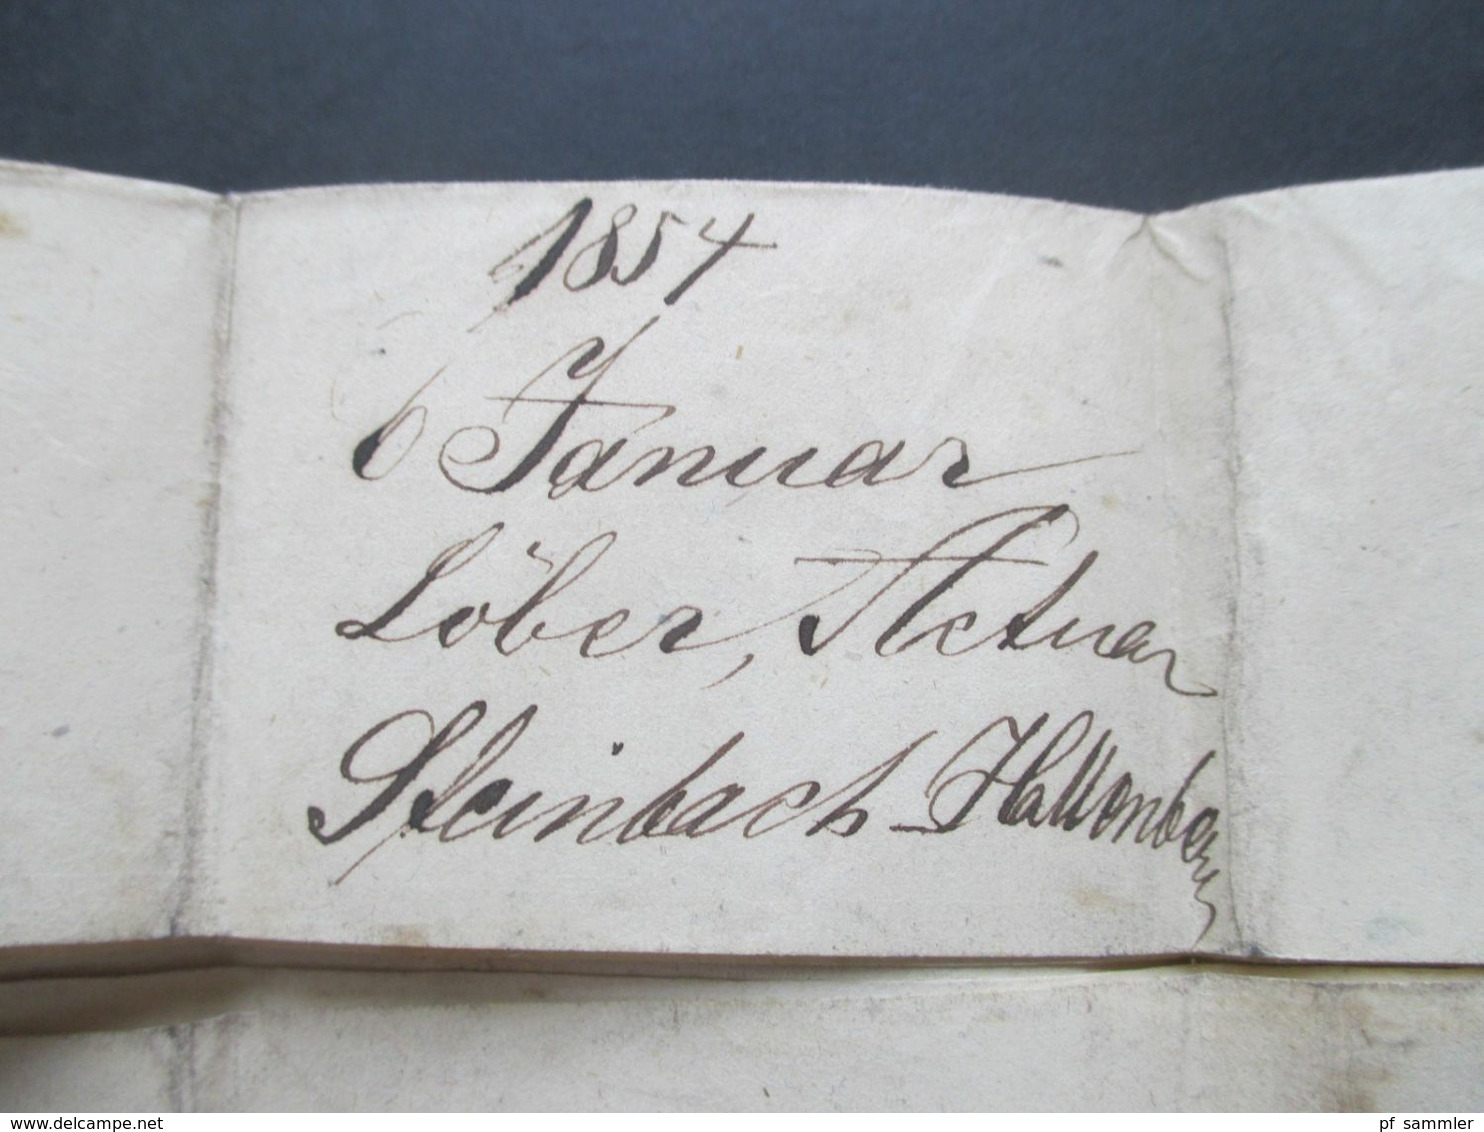 1854
6 Januar
Löber, Actuar
Steinbach-Hallenberg
delcampe.net
pf_sammler